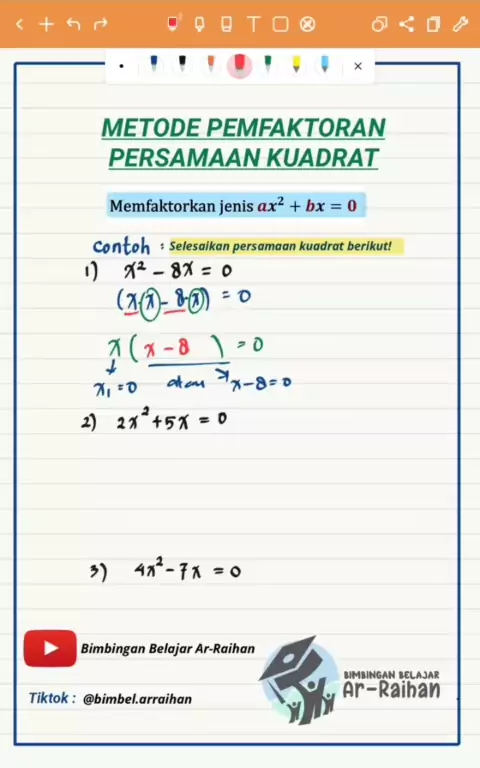 METODE PEMFAKTORAN
PERSAMAAN KUADRAT
Memfaktorkan jenis ax² + bx = 0
Contoh : Selesaikan persamaan kuadrat berikut!
1) x² - 8x = 0
(x·x - 8·x) = 0
x ( x - 8 ) = 0
x₁ = 0 atau x - 8 = 0
2) 2x² + 5x = 0
3) 4x² - 7x = 0
Bimbingan Belajar Ar-Raihan
BIMBINGAN BELAJAR
Ar-Raihan
Tiktok : @bimbel.arraihan